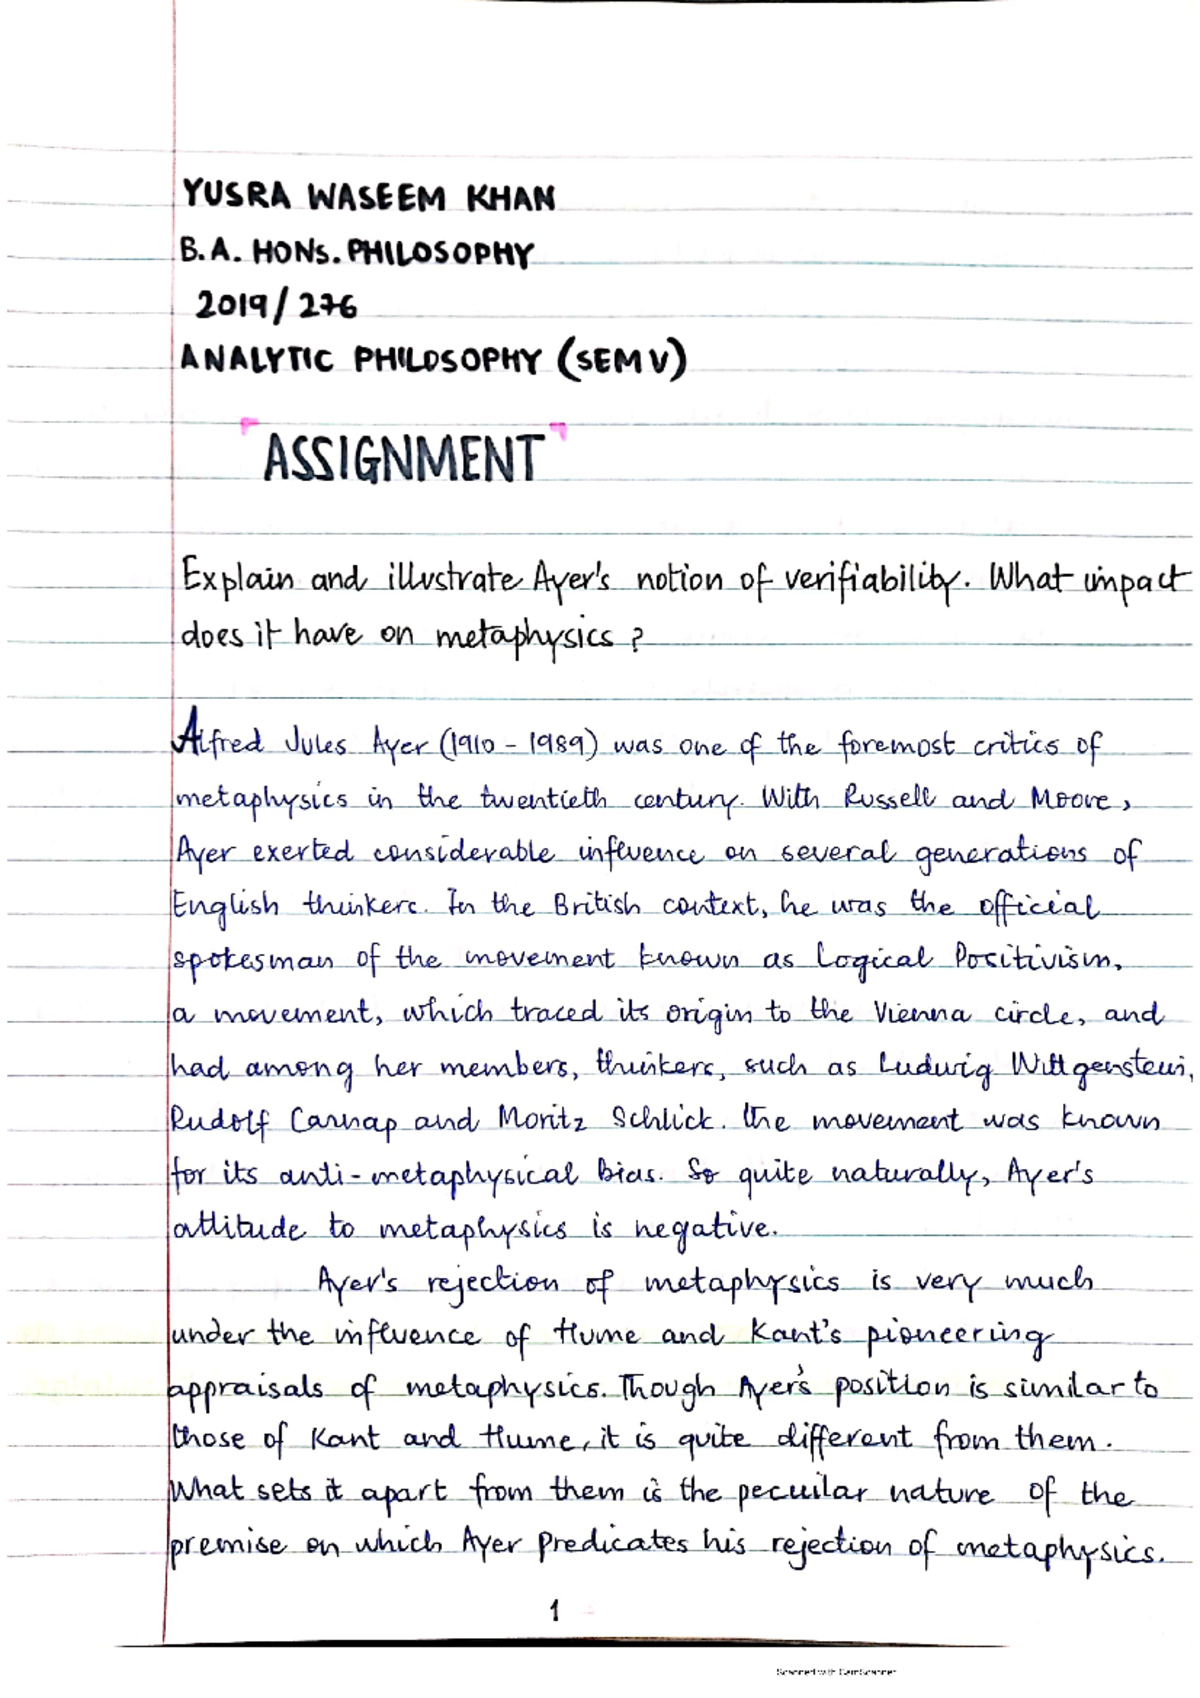 YUSRA WASEEM KHAN
B.A. HONS. PHILOSOPHY
2019/276
ANALYTIC PHILOSOPHY (SEM V)
ASSIGNMENT
Explain and illustrate Ayer's notion of verifiability. What impact
does it have on metaphysics?
Alfred Jules Ayer (1910 - 1989) was one of the foremost critics of
metaphysics in the twentieth century. With Russell and Moore,
Ayer exerted considerable influence on several generations of
English thinkers. In the British context, he was the official
spokesman of the movement known as Logical Positivism,
a movement, which traced its origin to the Vienna circle, and
had among her members, thinkers, such as Ludwig Wittgenstein,
Rudolf Carnap and Moritz Schlick. The movement was known
for its anti-metaphysical bias. So quite naturally, Ayer's
attitude to metaphysics is negative.
Ayer's rejection of metaphysics is very much
under the influence of Hume and Kant's pioneering
appraisals of metaphysics. Though Ayer's position is similar to
those of Kant and Hume, it is quite different from them.
What sets it apart from them is the pecuilar nature of the
premise on which Ayer predicates his rejection of metaphysics.
1
Scanned with CamScanner